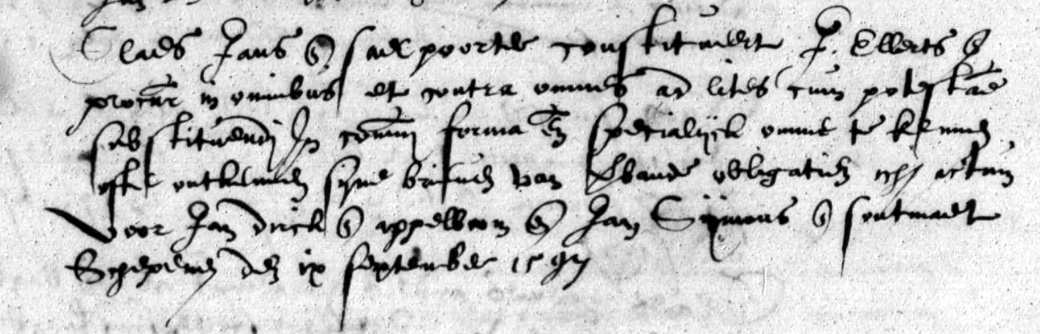 Claes Jans s sael poorter constitueert P. Ellerts s
procur in omnibus et contra omnes ad lites cum potestate
substituendi In comuni forma En specialijck omme te kennen
ofte ontkennen syne brieven van obligatien actum
Voor Jan dirck s appelboom En Jan Symons s soutmaet
Schepenen den ix september 1597